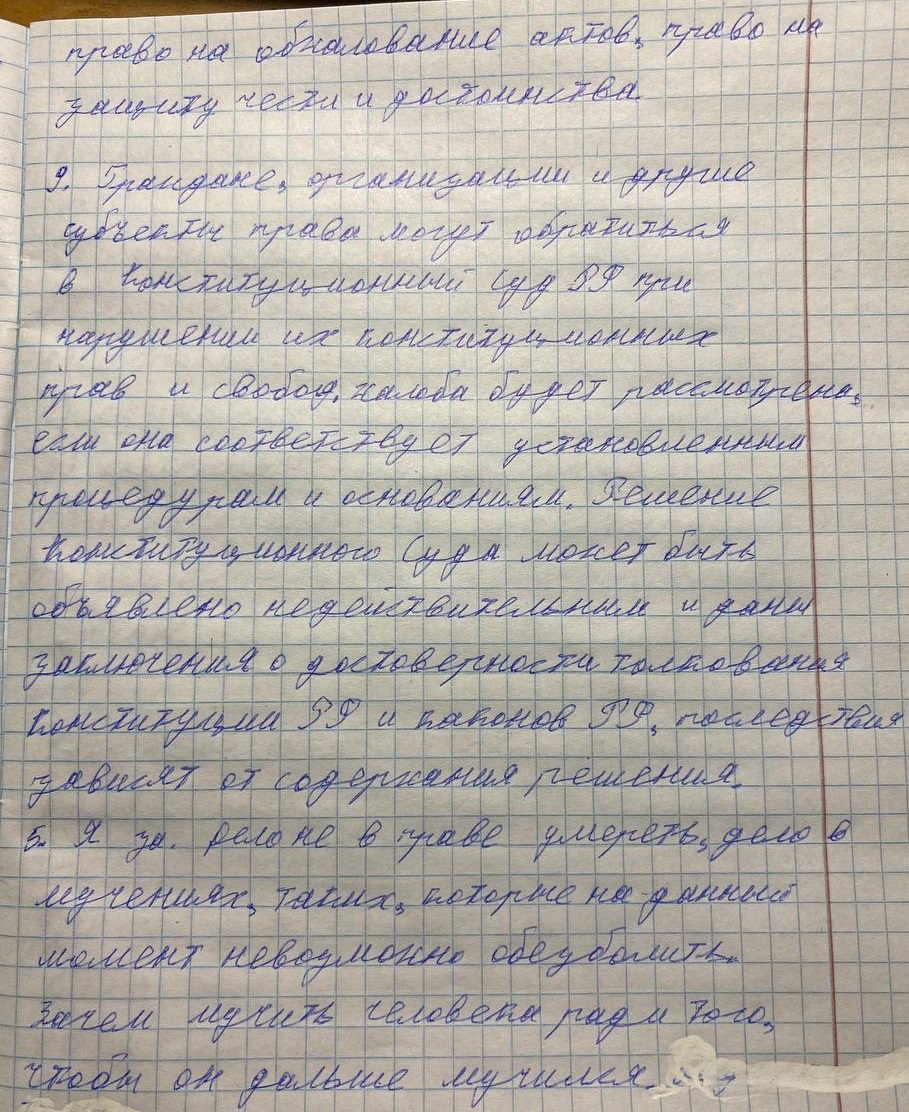 право на обжалование актов, право на
защиту чести и достоинства.
9. Граждане, организации и другие
субъекты права могут обратиться
в Конституционный Суд РФ при
нарушении их конституционных
прав и свобод, жалоба будет рассмотрена,
если она соответствует установленным
процедурам и основаниям. Решение
Конституционного Суда может быть
объявлено недействительным и даны
заключения о достоверности толкования
Конституции РФ и каконов РФ, последствия
зависят от содержания решения.
5. Я за. дело не в праве умереть, дело в
мучениях, таких, которые на данный
момент невозможно обезболить.
Зачем мучить человека ради того,
чтобы он дальше мучился.